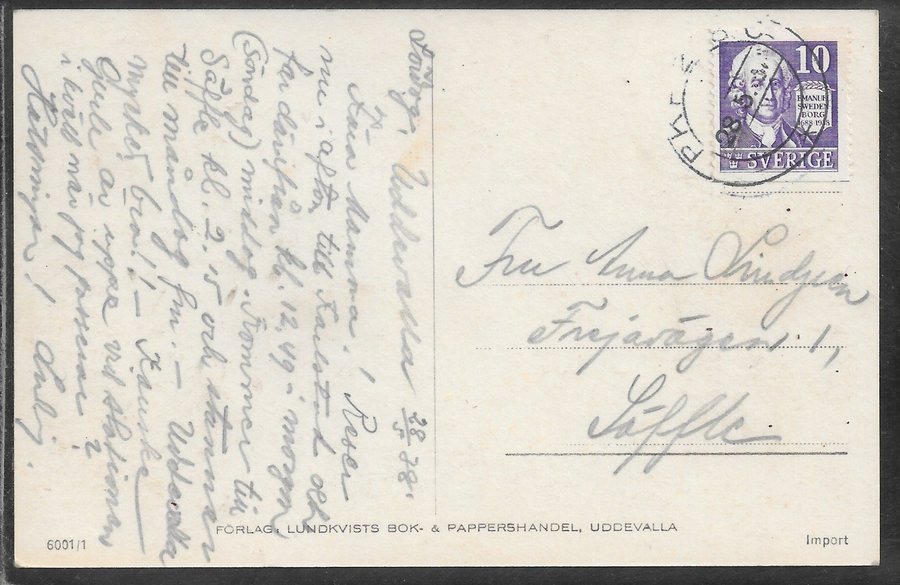 Lördag. Uddevalla 28/5 38.
Kära Mamma! Reser
nu i afton till Karlstad och
far därifrån kl. 12,49 i morgon
(söndag) middag. Kommer till
Säffle kl. 2.15 och stannar
till måndag fm. – Uddevalla
mycket bra! – Kanske
Gulle är uppe vid stationen
i kväll när jag passerar?
Hälsningar!
PKXP
28.5.38
10
EMANUEL
SWEDEN
BORG
1688-1938
SVERIGE
Fru Anna Lindgren
Frejavägen 1,
Säffle
FÖRLAG: LUNDKVISTS BOK- & PAPPERSHANDEL, UDDEVALLA
6001/1
Import